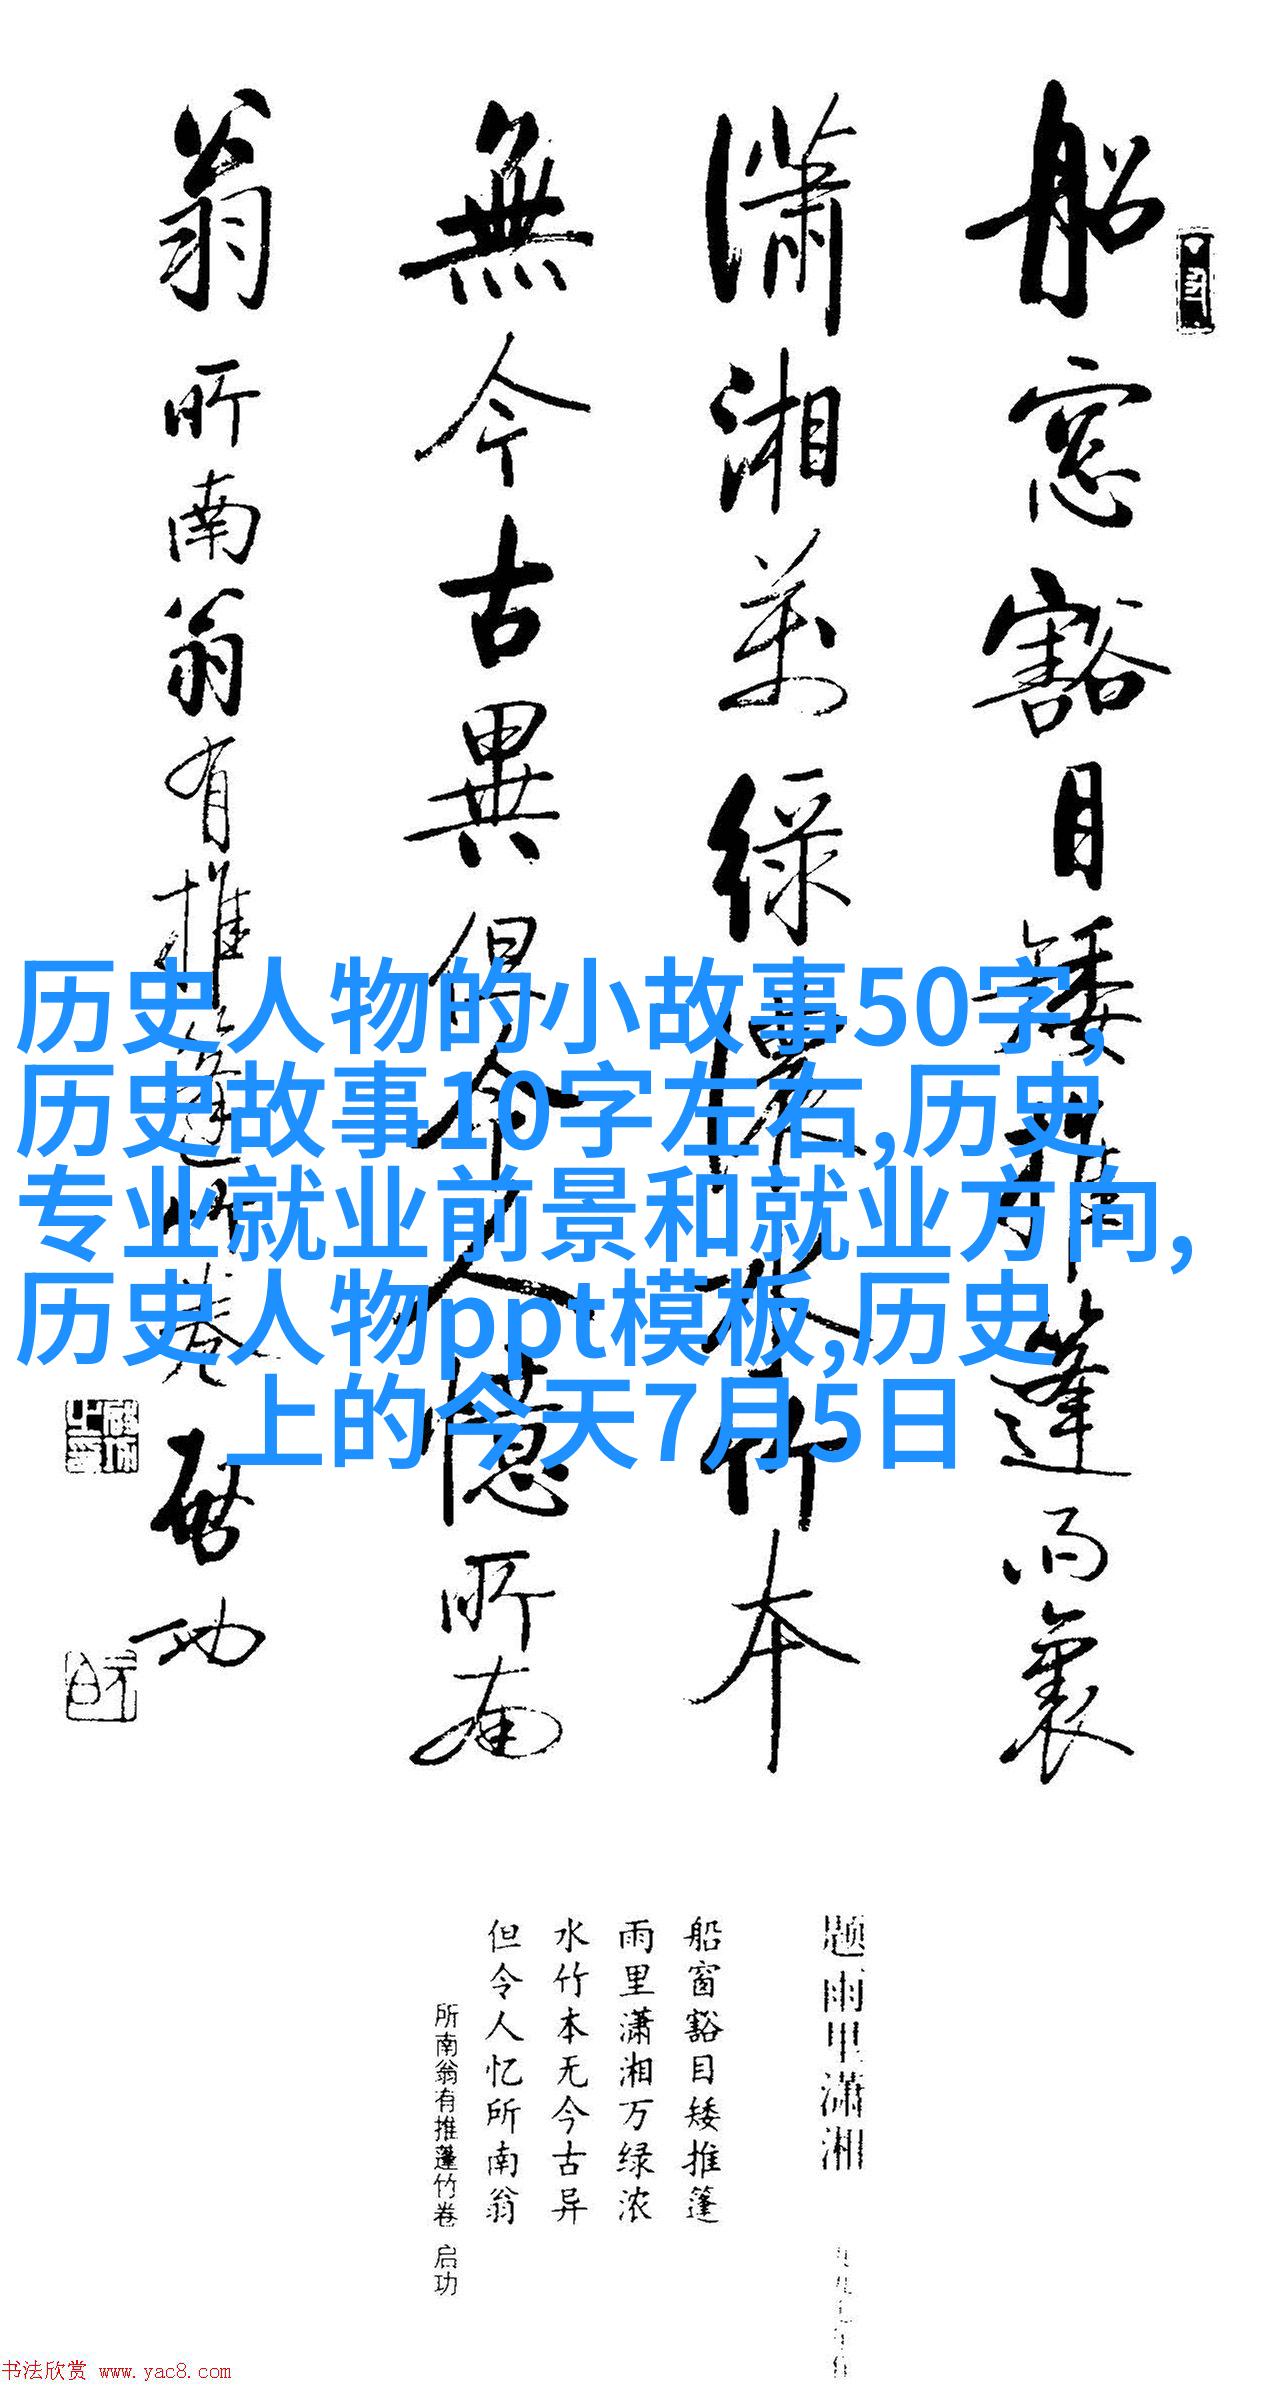 船窓豁目矮推篷雨裏
瀟湘萬緑濃水竹本
無今古異但令人憶所南
翁
所南翁有推篷竹卷
启功
历史人物的小故事50字,
历史故事10字左右,历史
专业就业前景和就业方向,
历史人物ppt模板,历史
上的今天7月5日
题雨里潇湘
船窗豁目矮推篷
雨里潇湘万绿浓
水竹本无今古异
但令人忆所南翁
所南翁有推蓬竹卷 启功
书法欣赏 www.yac8.com